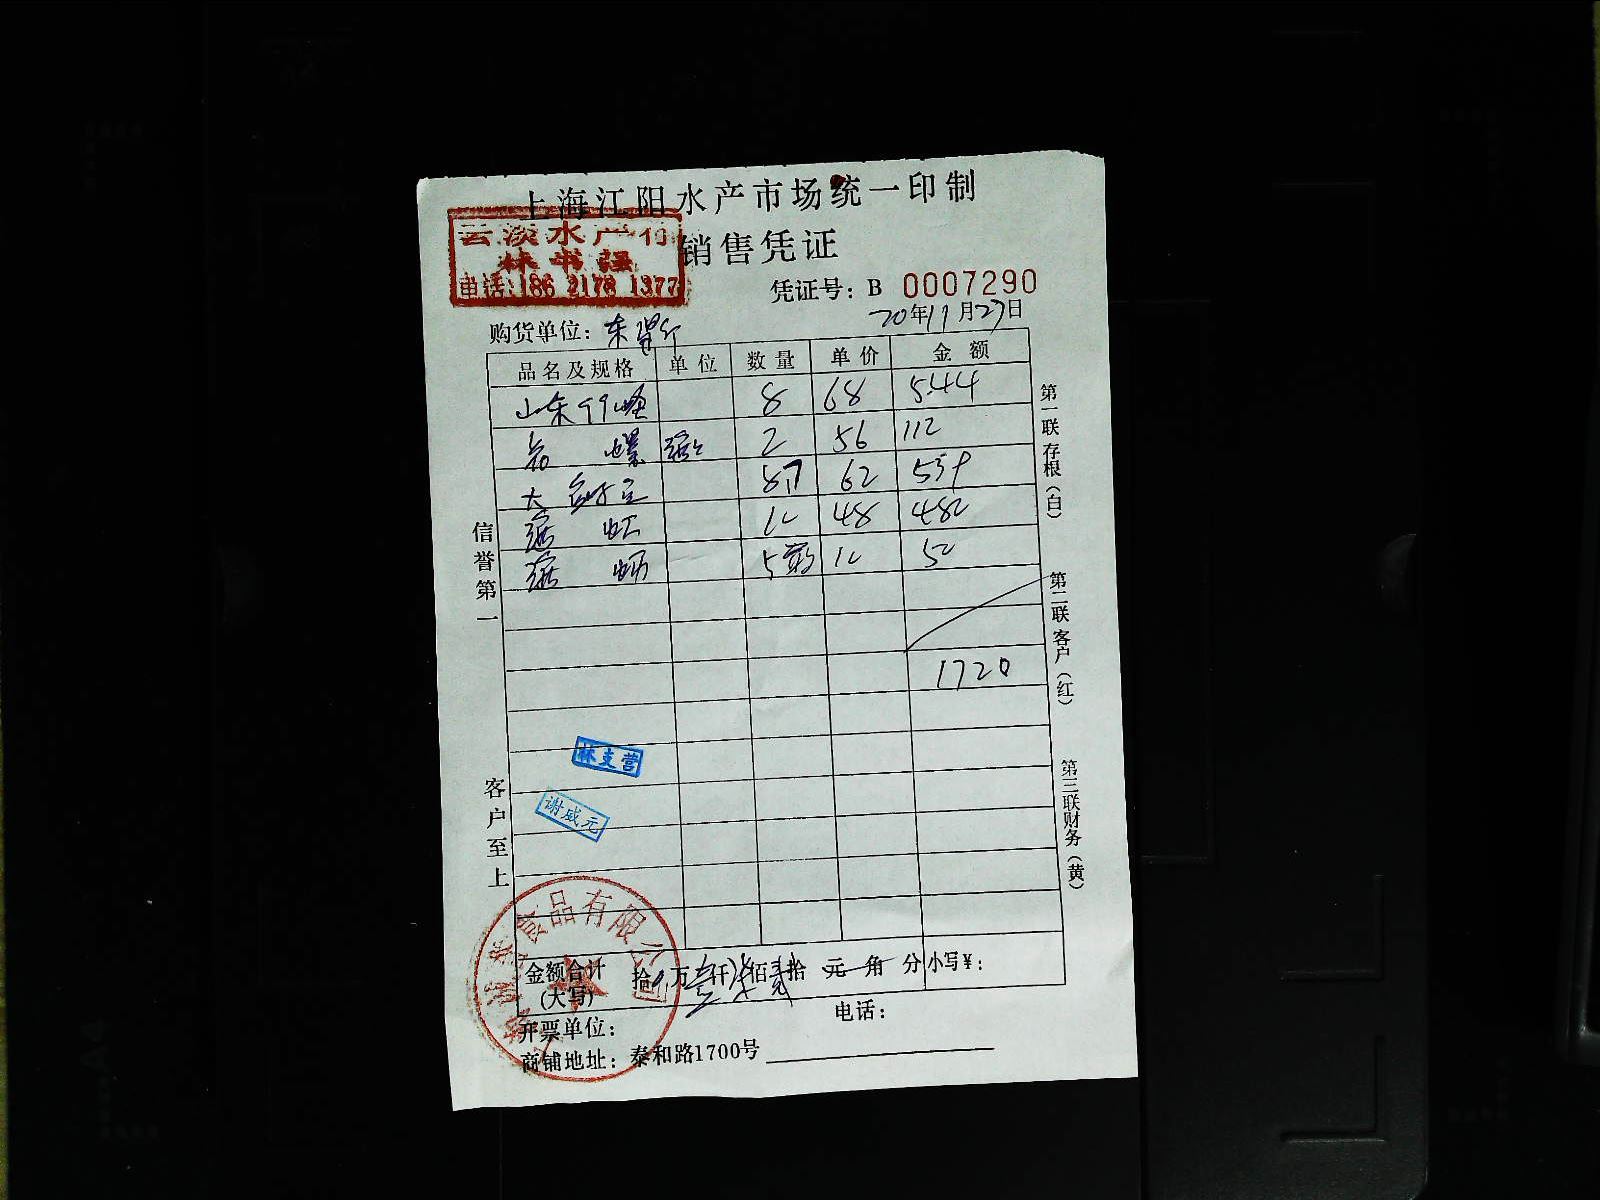 上海江阳水产市场统一印制
云淡水产行
林书强
电话:186 2178 1377
销售凭证
凭证号: B 0007290
20年11月27日
购货单位:
品名及规格 单位 数量 单价 金额
山东 8 68 544
螺 2 56 112
大 62 539
48 480
5 50
1720
信誉第一
客户至上
第一联存根(白)
第二联客户(红)
第三联财务(黄)
林支营
谢成元
食品有限公司
金额合计(大写) 拾 万壹仟柒佰贰拾元角分 小写¥:
开票单位: 电话:
商铺地址: 泰和路1700号